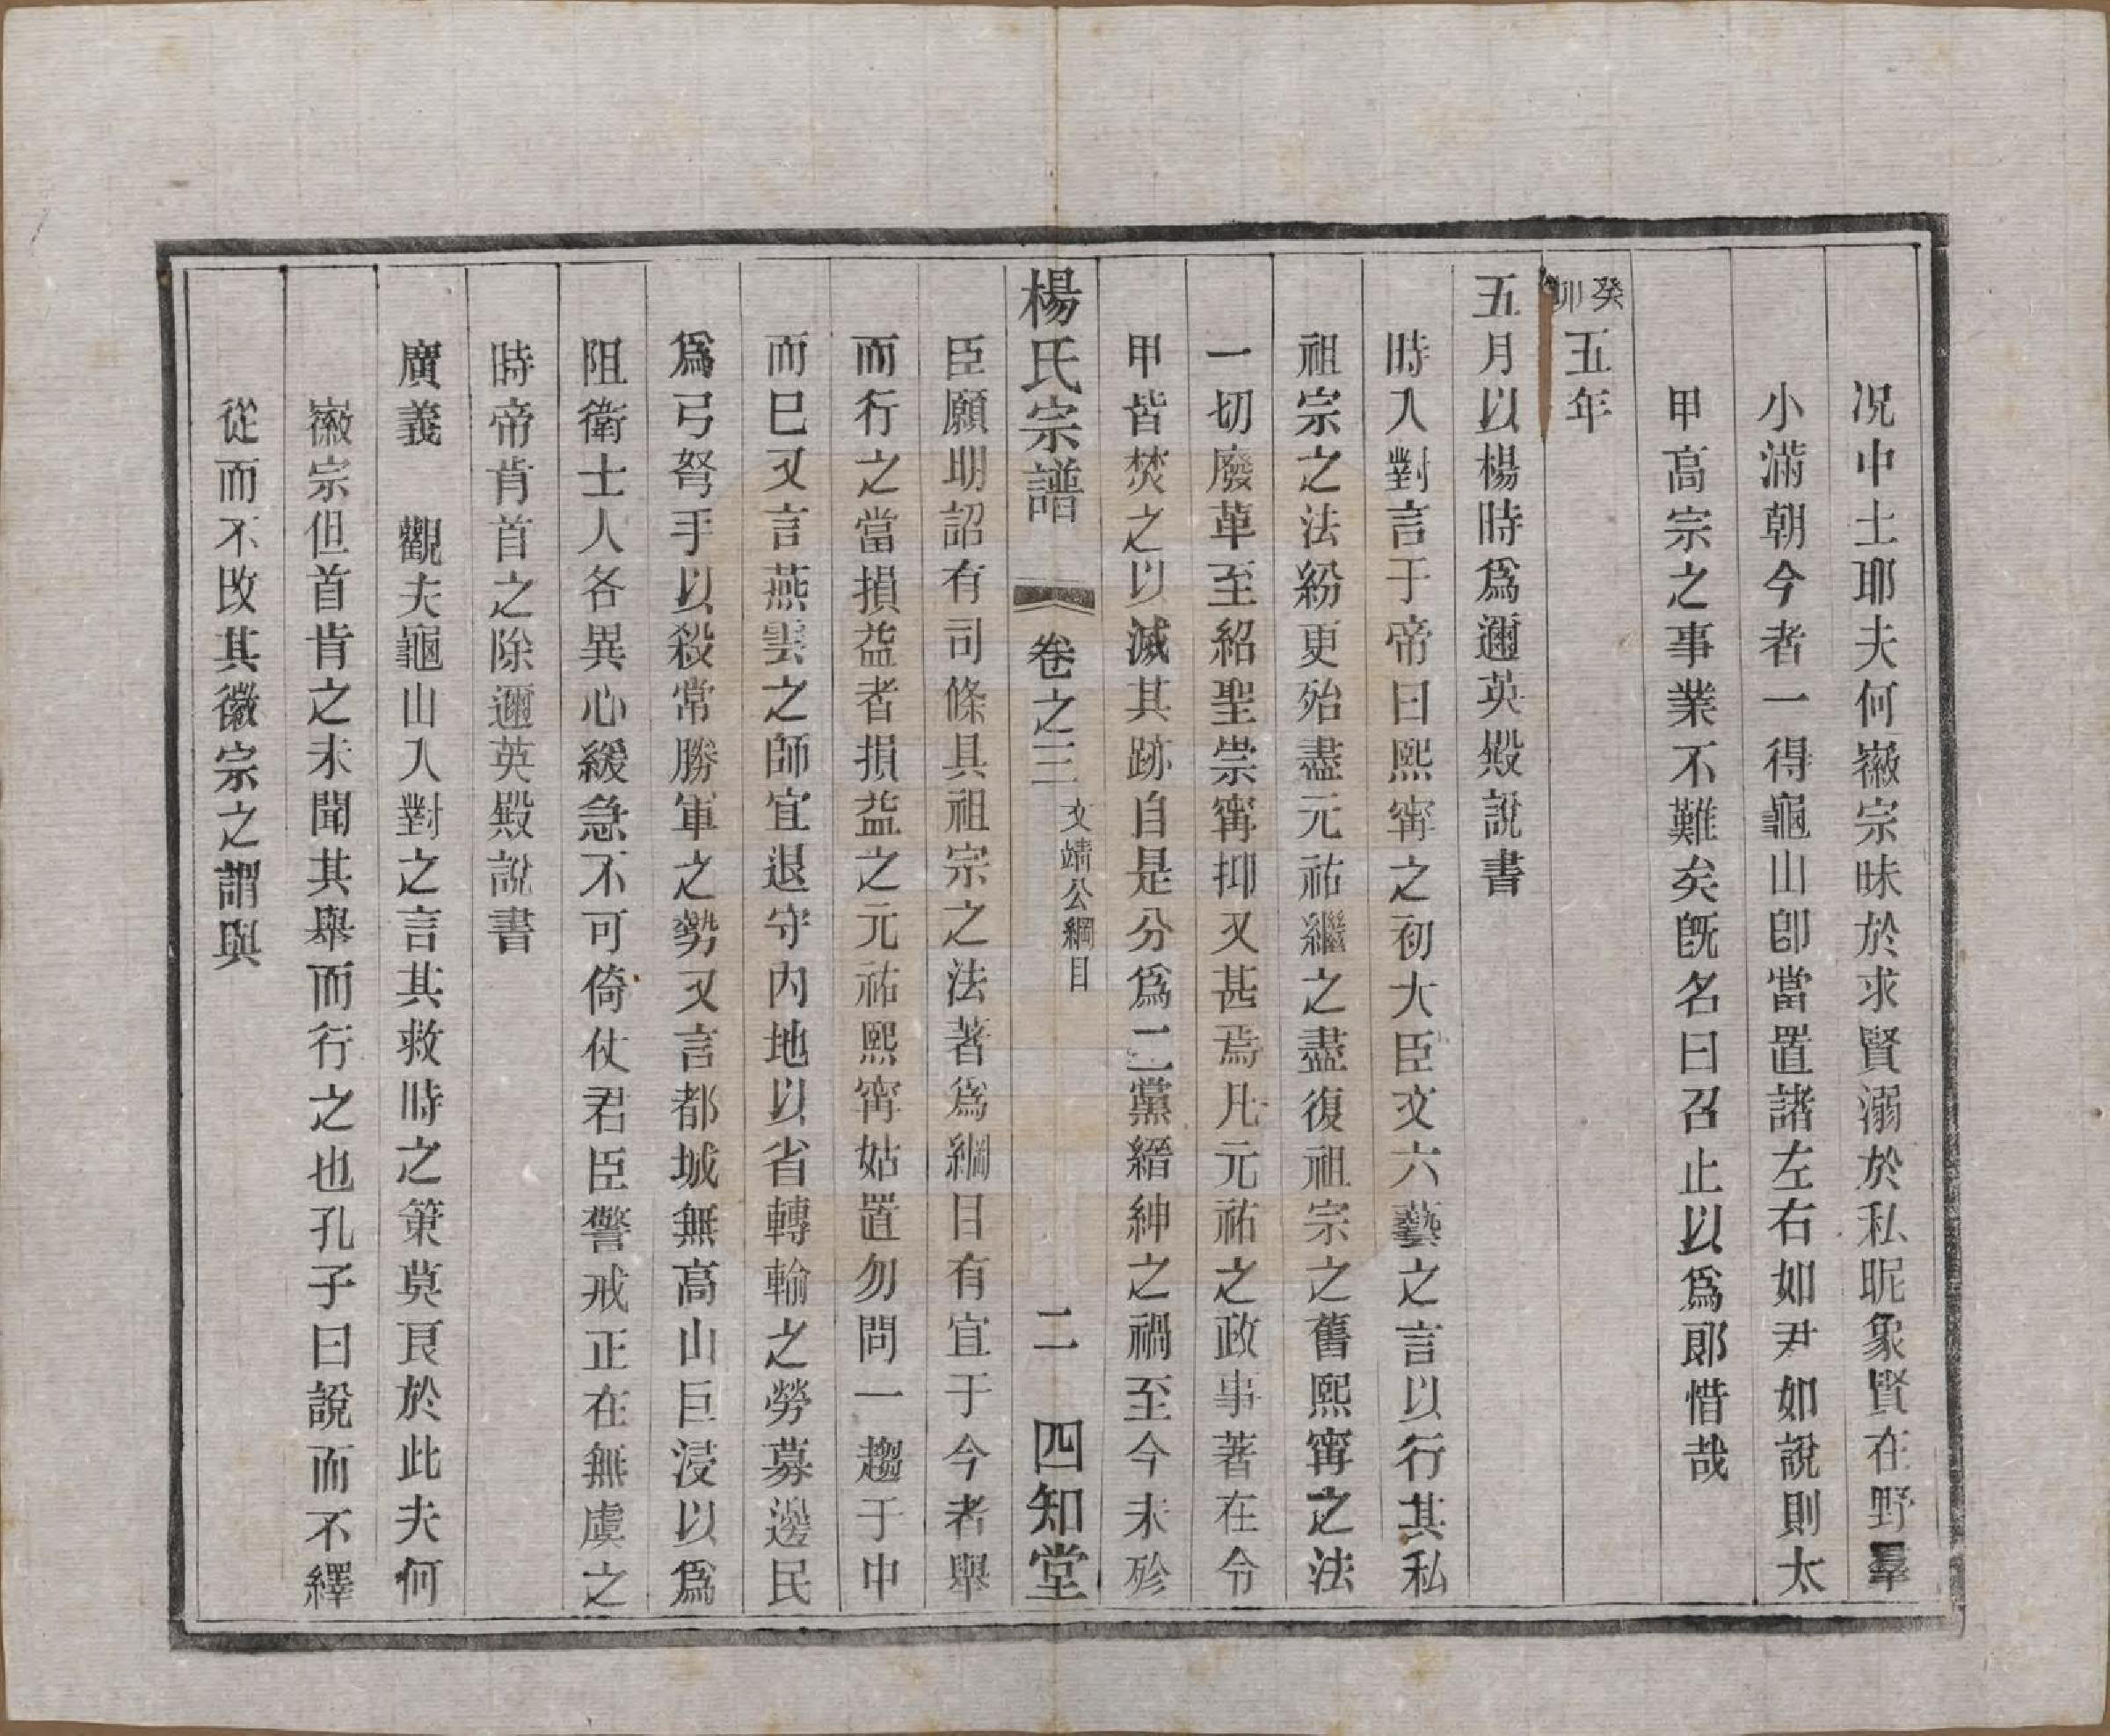 况中土耶夫何徽宗昧於求賢溺於私昵象賢在野羣
小滿朝今者一得龜山卽當置諸左右如尹如說則太
甲高宗之事業不難矣旣名曰召止以爲郞惜哉
癸卯五年
五月以楊時爲邇英殿說書
時入對言于帝曰熙寗之初大臣文六藝之言以行其私
祖宗之法紛更殆盡元祐繼之盡復祖宗之舊熙寗之法
一切廢革至紹聖崇寗抑又甚焉凡元祐之政事著在令
甲皆焚之以滅其跡自是分爲二黨縉紳之禍至今未殄
楊氏宗譜 卷之三 文靖公綱目 二 四知堂
臣願明詔有司條具祖宗之法著爲綱目有宜于今者舉
而行之當損益者損益之元祐熙寗姑置勿問一趨于中
而已又言燕雲之師宜退守内地以省轉輸之勞募邊民
爲弓弩手以殺常勝軍之勢又言都城無高山巨浸以爲
阻衛士人各異心緩急不可倚仗君臣警戒正在無虞之
時帝肯首之除邇英殿說書
廣義 觀夫龜山入對之言其救時之策莫良於此夫何
徽宗但首肯之未聞其舉而行之也孔子曰說而不繹
從而不改其徽宗之謂與